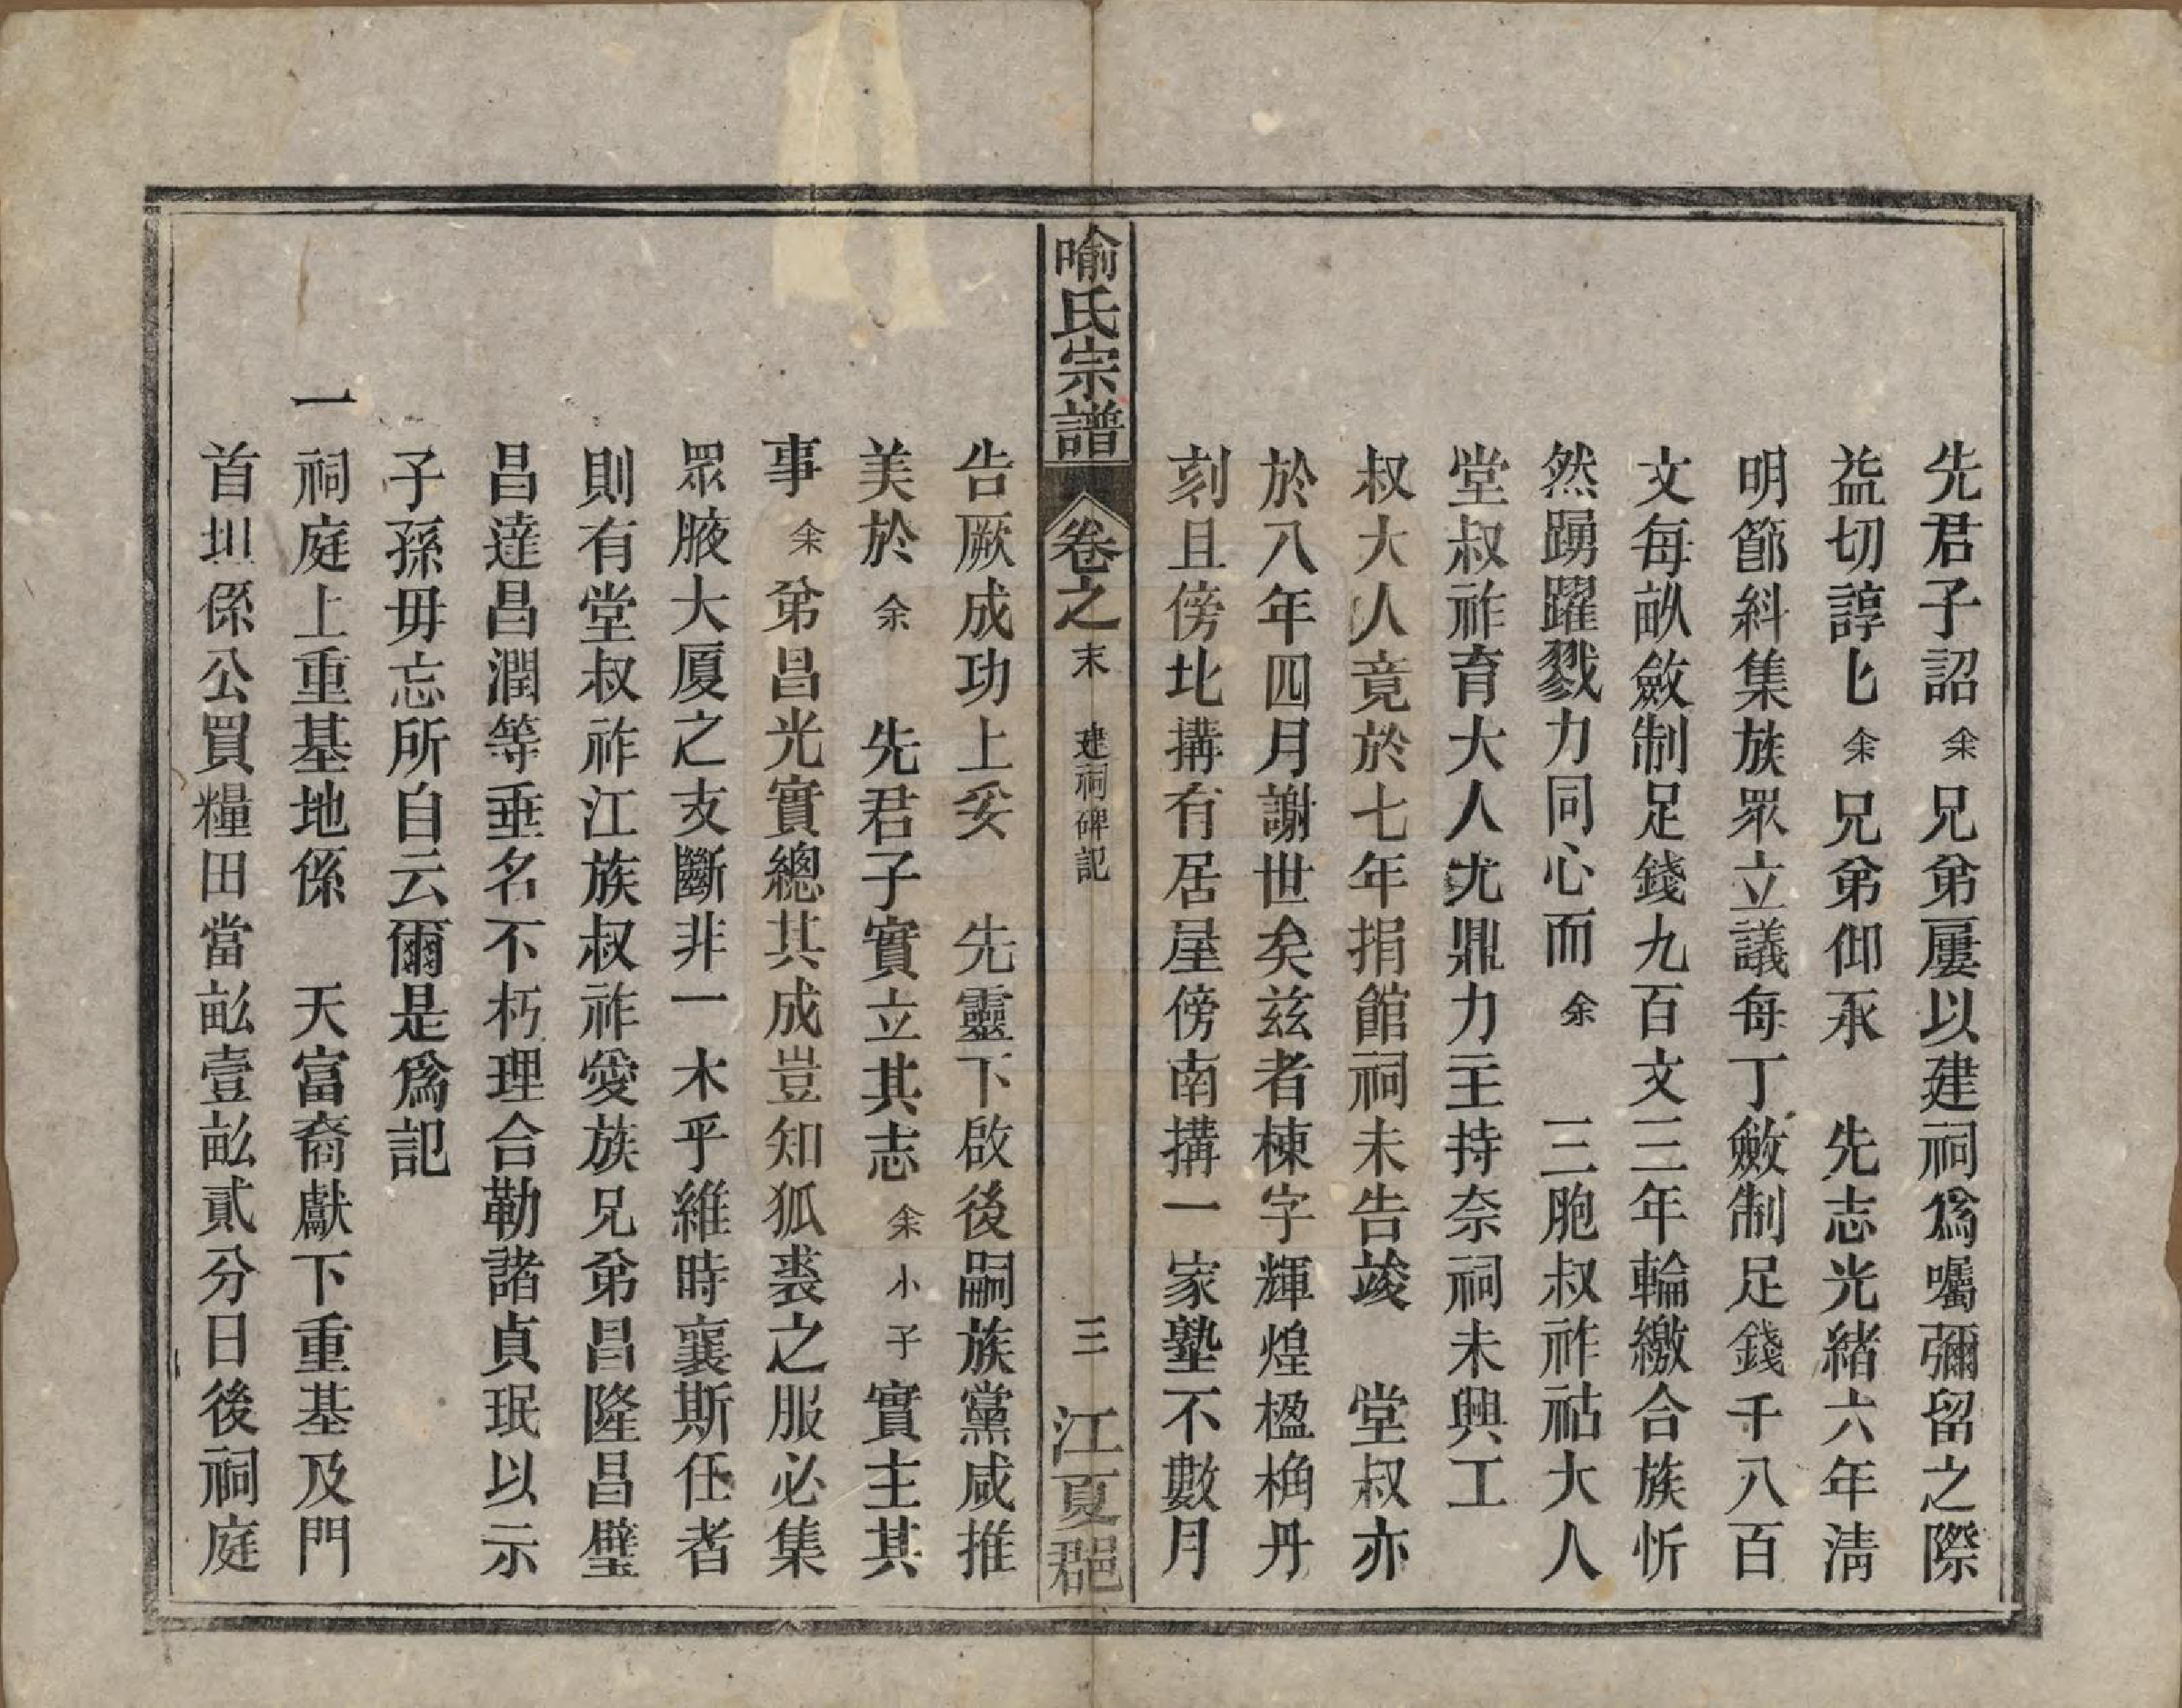 先君子詔余兄弟屢以建祠爲囑彌留之際
益切諄匕余兄弟仰承　先志光緒六年淸
明節糾集族眾立議每丁斂制足錢千八百
文每畝斂制足錢九百文三年輪繳合族忻
然踴躍戮力同心而余　三胞叔祚祜大人
堂叔祚育大人尤鼎力主持奈祠未興工
叔大人竟於七年捐館祠未告竣　堂叔亦
於八年四月謝世矣茲者棟宇輝煌楹桷丹
刻且傍北搆有居屋傍南搆一家塾不數月
喻氏宗譜　卷之末　建祠碑記　三　江夏郡
告厥成功上妥　先靈下啟後嗣族黨咸推
美於余　先君子實立其志余小子實主其
事余弟昌光實總其成豈知狐裘之服必集
眾腋大厦之支斷非一木乎維時襄斯任者
則有堂叔祚江族叔祚愛族兄弟昌隆昌璧
昌達昌潤等垂名不朽理合勒諸貞珉以示
子孫毋忘所自云爾是爲記
一祠庭上重基地係　天富裔獻下重基及門
首坦係公買糧田當畝壹畝貳分日後祠庭